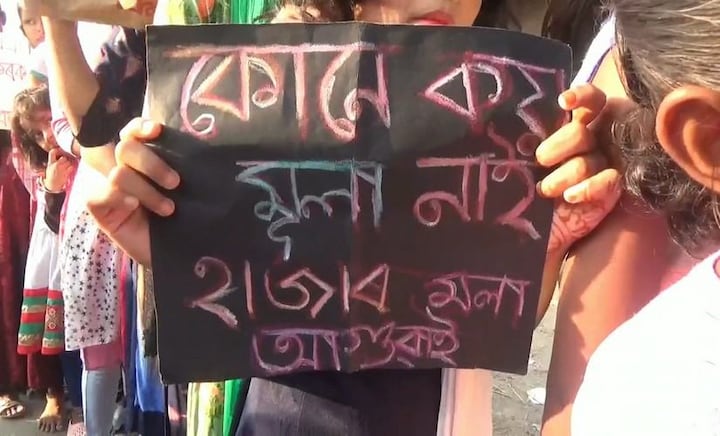 কোনে কয়
মূলা নাই
হাজাৰ মলা
আগুৱাই